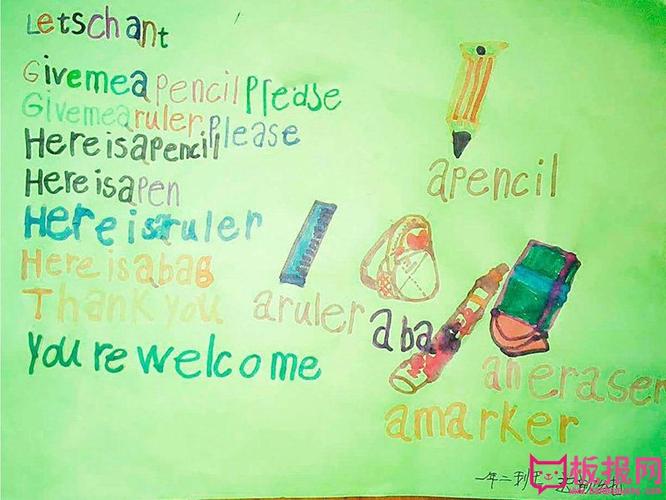 Letschant
GivemeapencilPlease
GivemearulerPlease
Hereisapencil
Hereisapen
Hereisaruler
Hereisabag
Thank you
youre welcome
apencil
aruler
abag
aneraser
amarker
一年二班
板报网